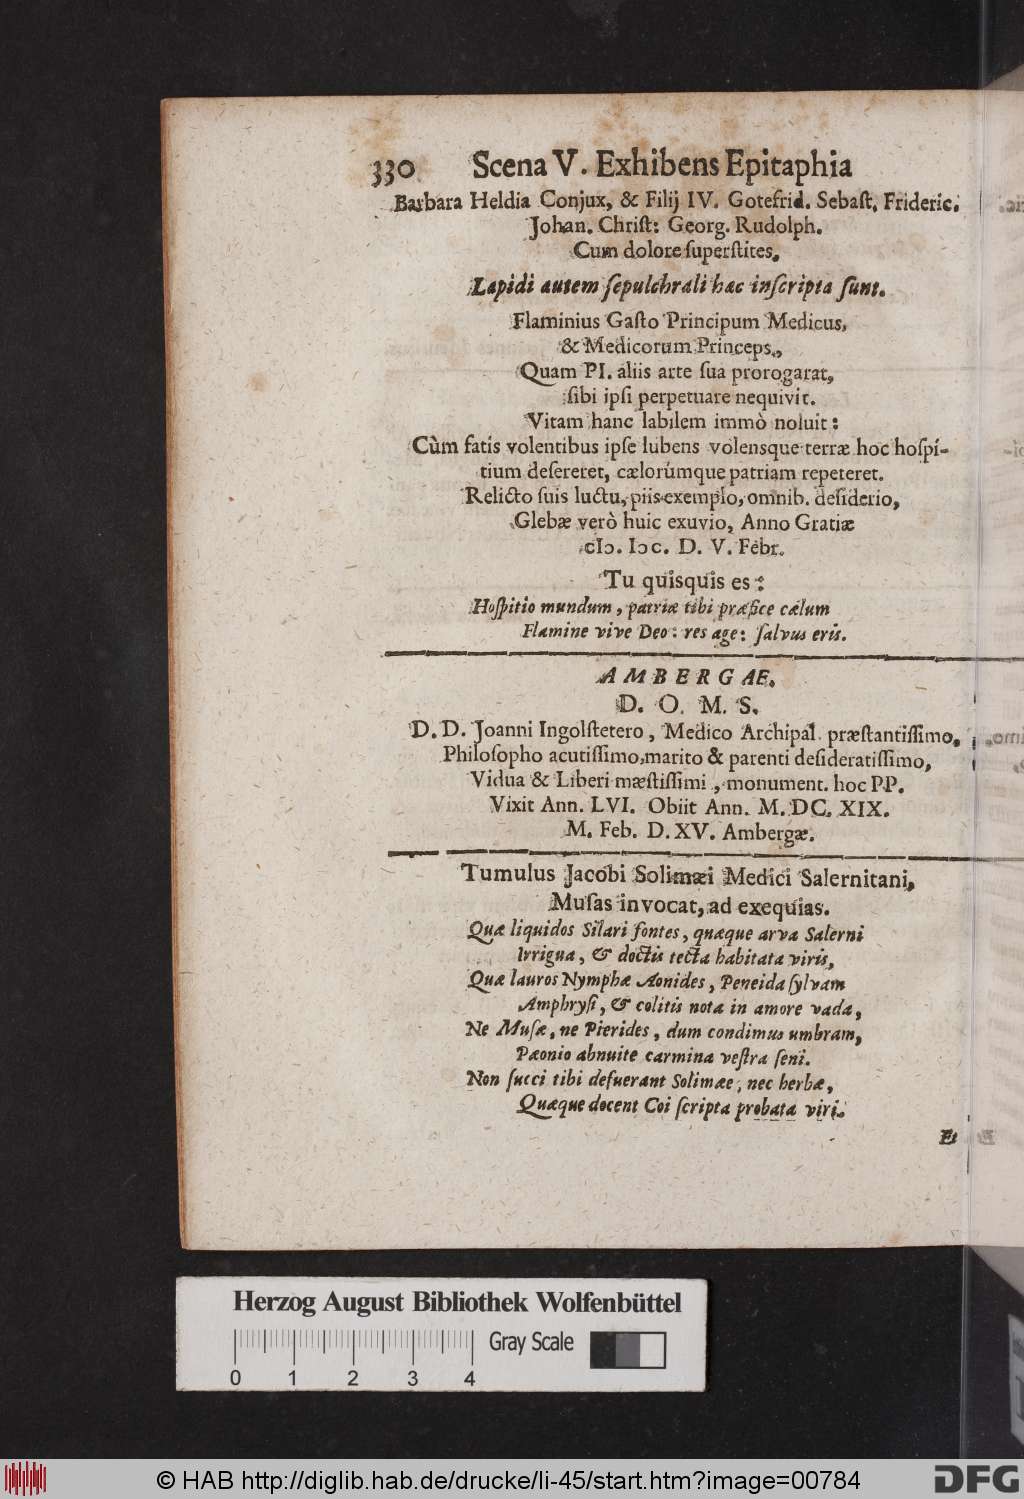 330 Scena V. Exhibens Epitaphia
Barbara Heldia Conjux, & Filij IV. Gotefrid. Sebaſt. Frideric.
Johan. Chriſt: Georg. Rudolph.
Cum dolore ſuperſtites.
Lapidi autem ſepulchrali hac inſcripta ſunt.
Flaminius Gaſto Principum Medicus,
& Medicorum Princeps,
Quam PI. aliis arte ſua prorogarat,
ſibi ipſi perpetuare nequivit.
Vitam hanc labilem immò noluit:
Cùm fatis volentibus ipſe lubens volensque terræ hoc hoſpi-
tium deſereret, cælorúmque patriam repeteret.
Relicto ſuis luctu, piis exemplo, omnib. deſiderio,
Glebæ verò huic exuvio, Anno Gratiæ
cIↄ. Iↄc. D. V. Febr.
Tu quisquis es:
Hoſpitio mundum, patriæ tibi præfice cælum
Flamine vive Deo: res age: ſalvus eris.
AMBERGAE.
D. O. M. S.
D. D. Joanni Ingolſtetero, Medico Archipal. præſtantiſſimo,
Philoſopho acutiſſimo, marito & parenti deſideratiſſimo,
Vidua & Liberi mæſtiſſimi, monument. hoc P.P.
Vixit Ann. LVI. Obiit Ann. M. DC. XIX.
M. Feb. D. XV. Ambergæ.
Tumulus Jacobi Solimæi Medici Salernitani,
Muſas invocat, ad exequias.
Quæ liquidos Silari fontes, quæque arva Salerni
Irrigua, & doctis tecta habitata viris,
Quæ lauros Nymphæ Aonides, Peneida ſylvam
Amphryſi, & colitis nota in amore vada,
Ne Muſæ, ne Pierides, dum condimus umbram,
Pæonio abnuite carmina veſtra ſeni.
Non ſucci tibi defuerant Solimæe, nec herbæ,
Quæque docent Coi ſcripta probata viri.
Et
Herzog August Bibliothek Wolfenbüttel
Gray Scale
0 1 2 3 4
© HAB http://diglib.hab.de/drucke/li-45/start.htm?image=00784
DFG